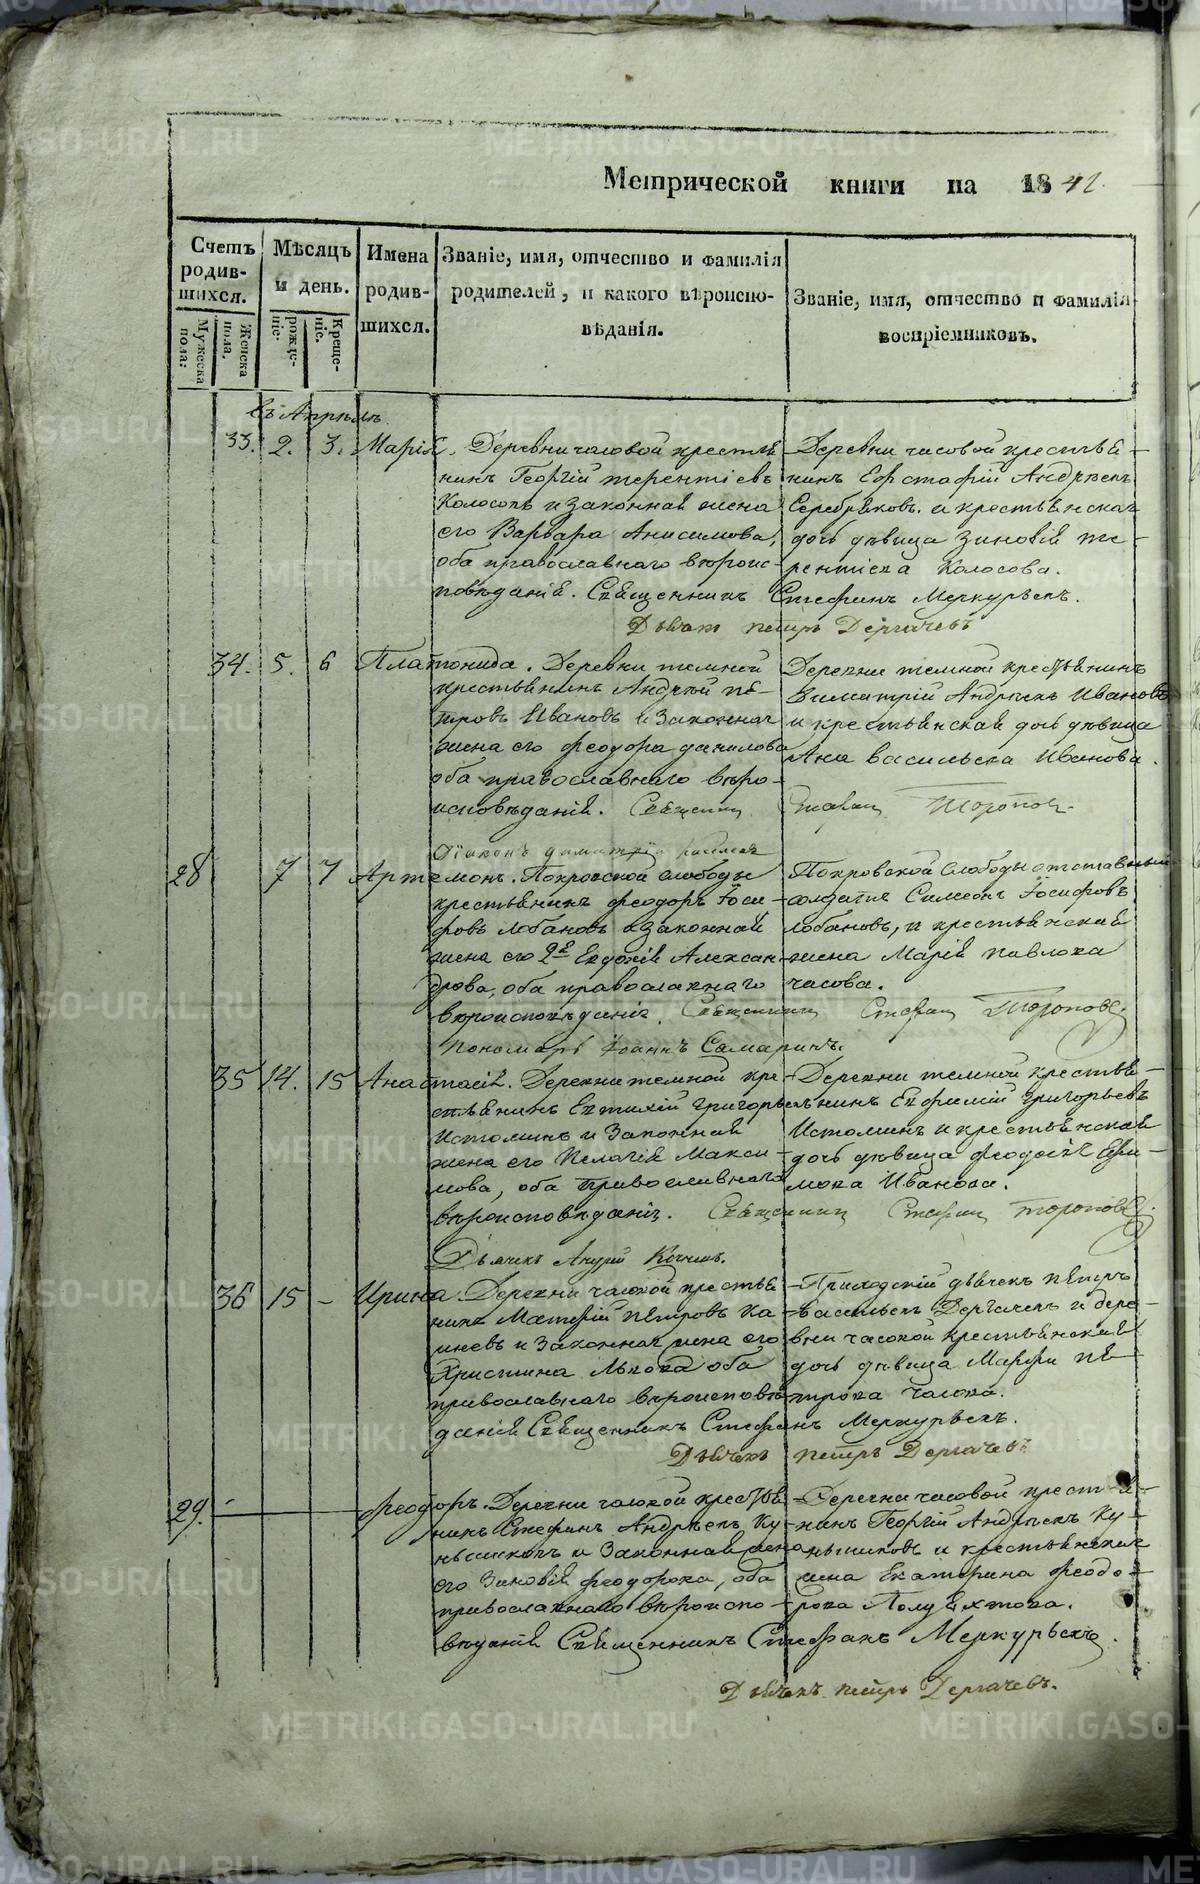 Метрической книги на 1842.
Счетъ родив-шихся.
Мужеска пола:
Женска пола.
Мѣсяцъ и день.
рожде-ніе.
Креще-ніе.
Имена родив-шихся.
Званіе, имя, отчество и фамилія
родителей, и какого вѣроиспо-
вѣданія.
Званіе, имя, отчество и фамилія
воспріемниковъ.
въ Апрѣлѣ
33. 2. 3. Марія. Деревни часовой крестья
нинъ Георгій терентіевъ
Колосовъ и законная жена
его Варвара Анисимова,
оба православнаго вѣроис-
повѣданія. Священникъ Стефанъ Меркурьевъ.
Деревни часовой крестья-
нинъ Ефстафій Андреевъ
Серебряковъ. и крестьянская
дочь дѣвица Зиновія те-
рентіева Колосова.
Дьячекъ петръ Дергачевъ
34. 5. 6 Платонида. Деревни темной
крестьянинъ Андрей пе-
тровъ Ивановъ и законная
жена его феодора данилова
оба православнаго вѣро-
исповѣданія. Священник Стефан Торопов
Деревни темной крестьянинъ
Димитрій Андреевъ Ивановъ
и крестьянская дочь дѣвица
Анна васильева Иванова.
Діаконъ димитрій
28 7 7 Артемонъ. Покровской слободы
крестьянинъ феодоръ Іоси-
фовъ Лобановъ и законная
жена его 2я Евдокія Алексан-
дрова, оба православнаго
вѣроисповѣданія. Священник Стефан Торопов.
Покровской слободы отставный
солдатъ Симеонъ Іосифовъ
лобановъ, и крестьянская
жена Марія павлова
часова.
Пономарь Іоаннъ Самаринъ.
35 14. 15 Анастасія. Деревни темной кре-
стьянинъ Евтихій григорьевъ
Истоминъ и законная
жена его Пелагія Макси-
мова, оба православнаго
вѣроисповѣданія. Священник Стефан торопов.
Деревни темной крестья-
нинъ Ефимій григорьевъ
Истоминъ и крестьянская
дочь дѣвица феодосія Ефи-
мова Иванова.
Дьячекъ Андрей
36 15 - Ирина. Деревни часовой крестья
нинъ Матфій петровъ Ка-
шневъ и законная жена его
Христина Львова оба
православнаго вѣроисповѣ
данія Священникъ Стефанъ Меркурьевъ.
Приходскій дьячекъ петръ
васильевъ Дергачевъ и дере-
вни часовой крестьянская
дочь дѣвица Марфа пе-
трова часова.
Дьячекъ петръ Дергачевъ
29. феодоръ. Деревни часовой крестья
нинъ Стефанъ Андреевъ Ку-
нщиковъ и законная жена
его Зиновія феодорова, оба
православнаго вѣроиспо-
вѣданія Священникъ Стефанъ Меркурьевъ.
Деревни часовой крестья-
нинъ Георгій Андреевъ Ку-
нщиковъ и крестьянская
жена Екатерина феодо-
рова Полуяхтова.
Дьячекъ петръ Дергачевъ.
METRIKI.GASO-URAL.RU